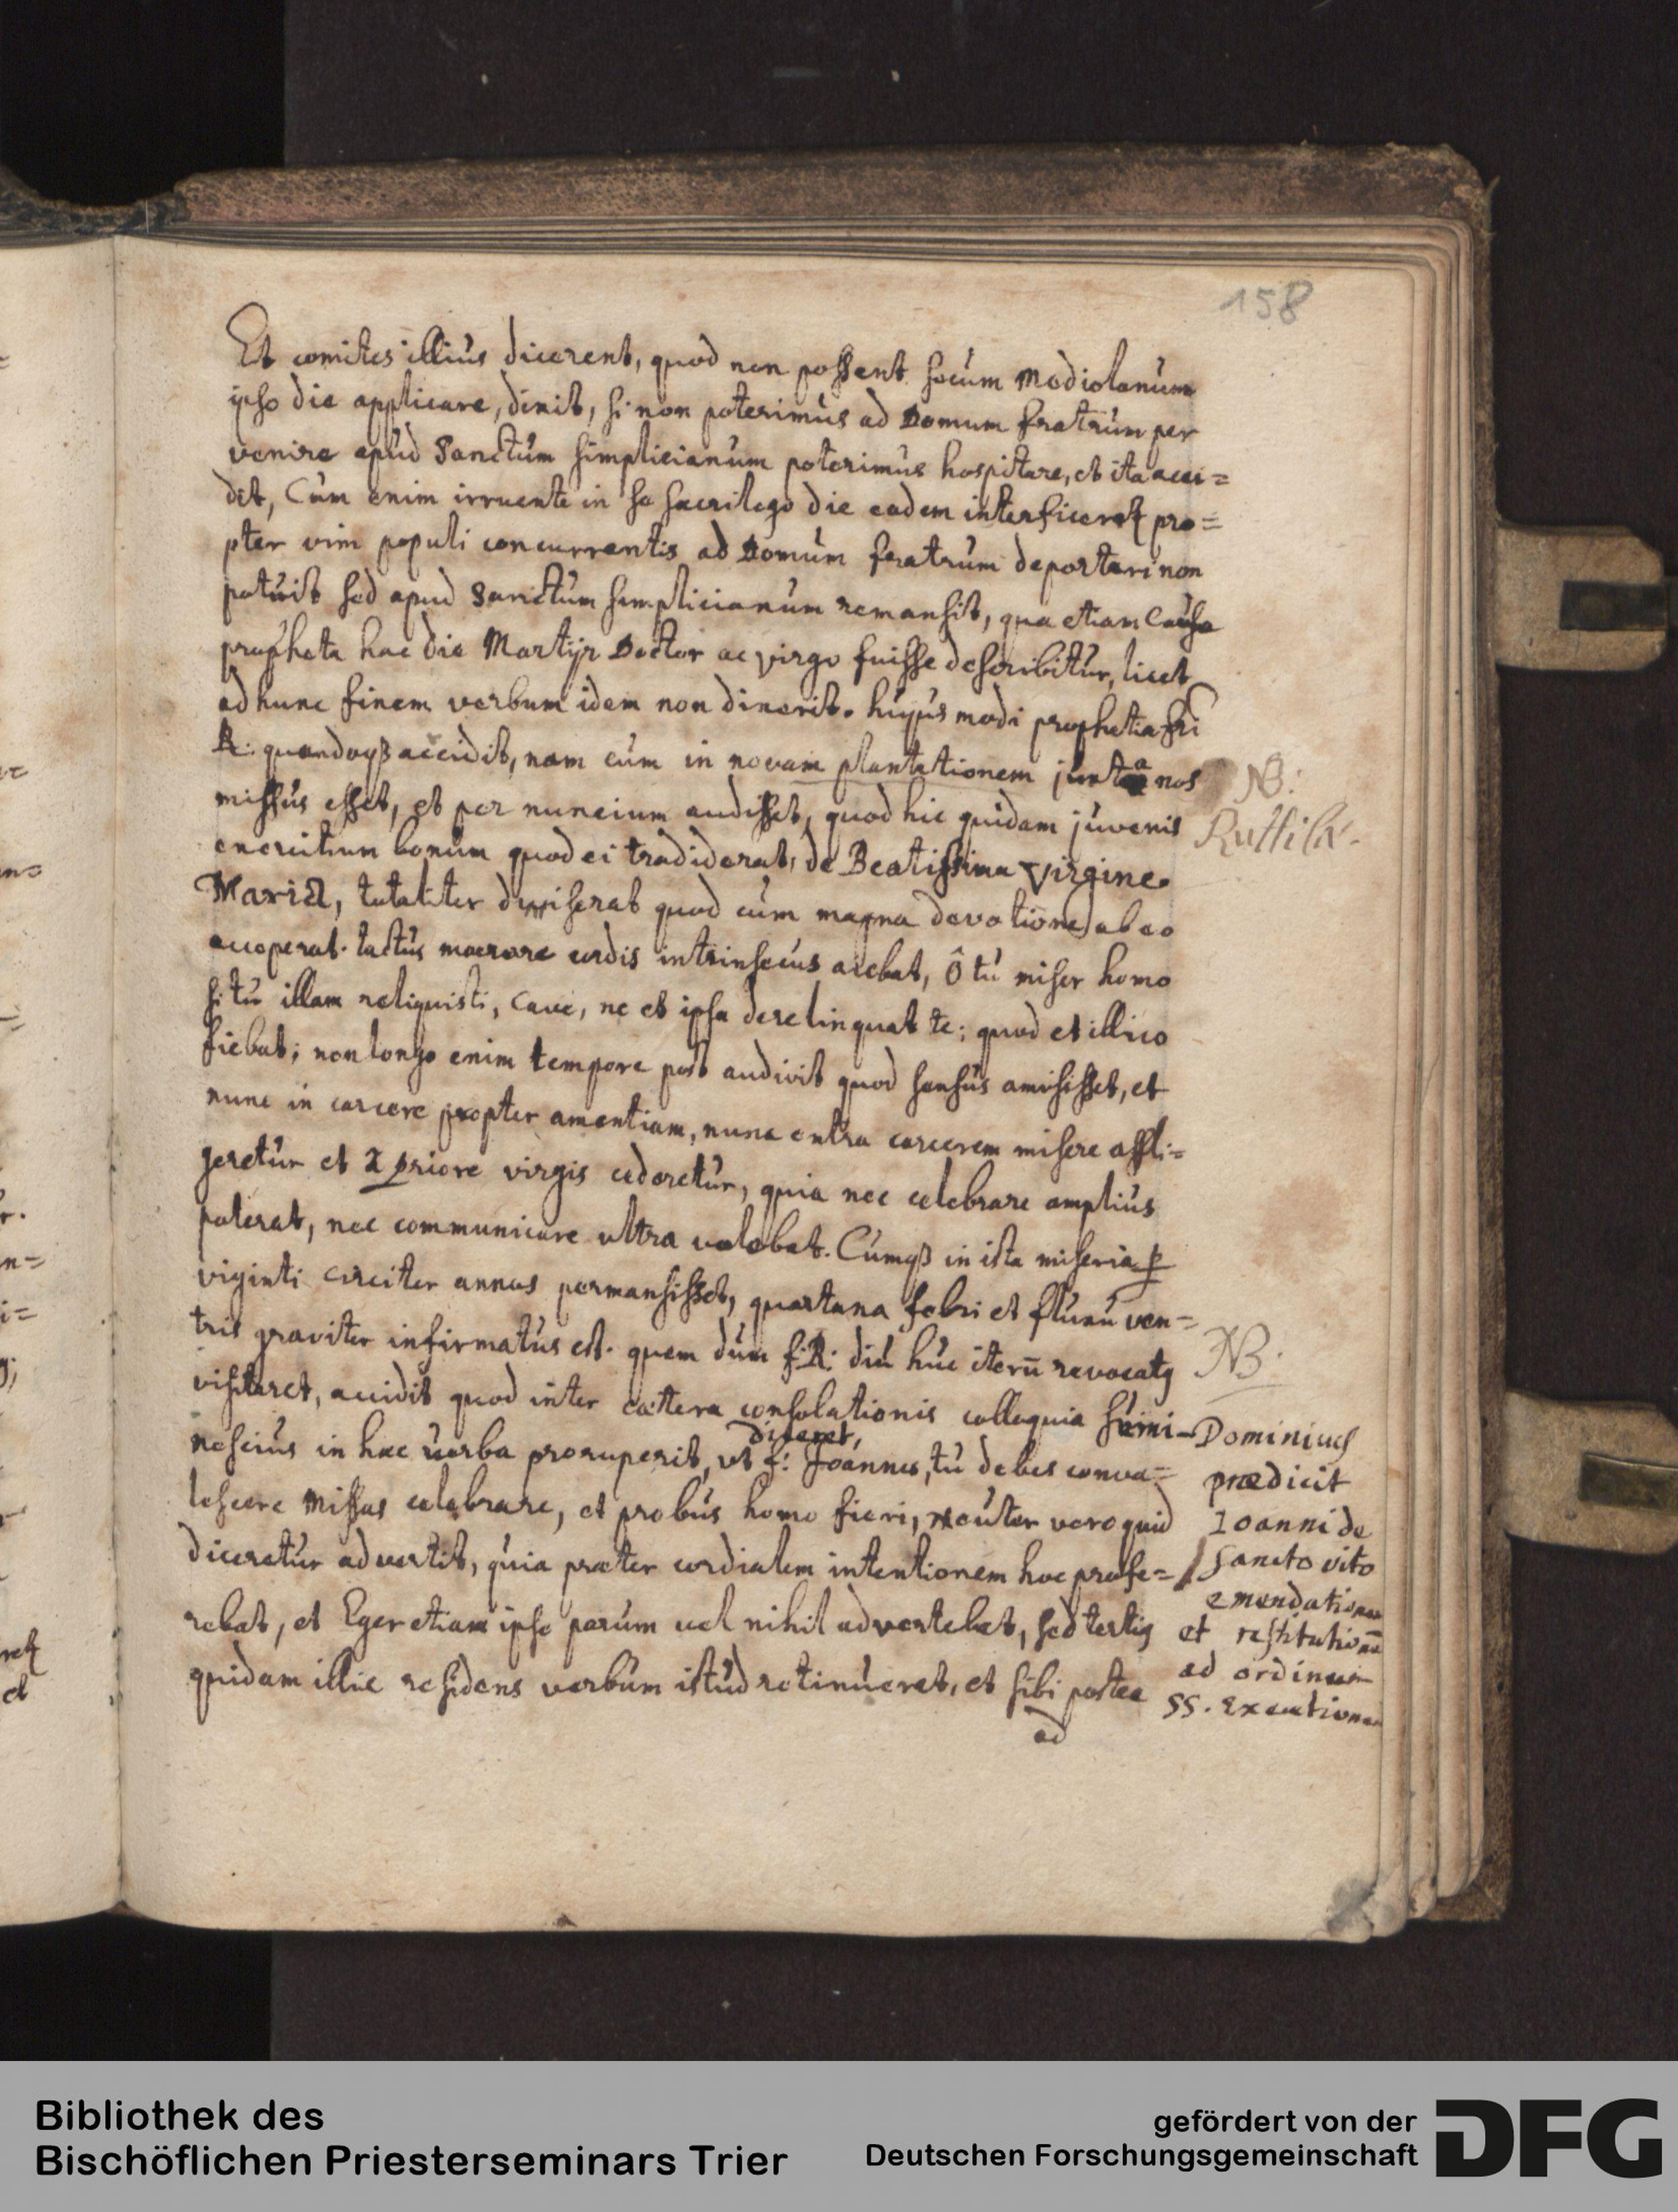 158
Et comites illius dicerent, quod non possent secum Mediolanum
ipso die applicare, dixit, si non poterimus ad Domum fratrum per
venire apud Sanctum simplicianum poterimus hospitare, et ita acci=
dit, Cum enim irruente in se sacrilego die eadem interficeret pro=
pter vim populi concurrentis ad Domum fratrum deportari non
potuit sed apud Sanctum simplicianum remansit, qua etiam Causa
propheta hac die Martijr Doctor ac virgo fuisse describitur, licet
ad hunc finem verbum idem non dixerit. hujus modi prophetia fri
R: quandoqз accidit, nam cum in novam plantationem juxta nos
missus esset, et per nuncium audisset, quod hic quidam juvenis
exercitium bonum quod ei tradiderat, de Beatissima Virgine
Maria, totaliter dimiserat quod cum magna devotione ab eo
acceperat. tactus maerore cordis intrinsecus aiebat, Ô tu miser homo
si tu illam reliquisti, Cave, ne et ipsa derelinquat te; quod et illico
fiebat; non longo enim tempore post audivit quod sensus amisisset, et
nunc in carcere propter amentiam, nunc extra carcerem misere affli=
geretur et a priore virgis cederetur, quia nec celebrare amplius
poterat, nec communicare ultra valebat. Cumqз in ista miseria p
viginti circiter annos permansisset, quartana febri et fluxu ven=
tris graviter infirmatus est. quem dum f. R. diu huc iterū revocatꝯ
visitaret, accidit quod inter caetera consolationis colloquia
nescius in hac verba proruperit, ut diceret, f: Joannes, tu debes conva=
lescere Missas celebrare, et probus homo fieri, neuter vero quid
diceretur advertit, quia praeter cordialem intentionem hoc profe=
rebat, et Eger etiam ipse parum vel nihil advertebat, sed tertiꝯ
quidam illic residens verbum istud retinueret, et sibi postea
ad
NB:
NB.
Dominicus
praedicit
Ioanni de
sancto vito
emendationem
et restitutionē
ad ordinum
SS. Executionem
Bibliothek des
Bischöflichen Priesterseminars Trier
gefördert von der
Deutschen Forschungsgemeinschaft
DFG